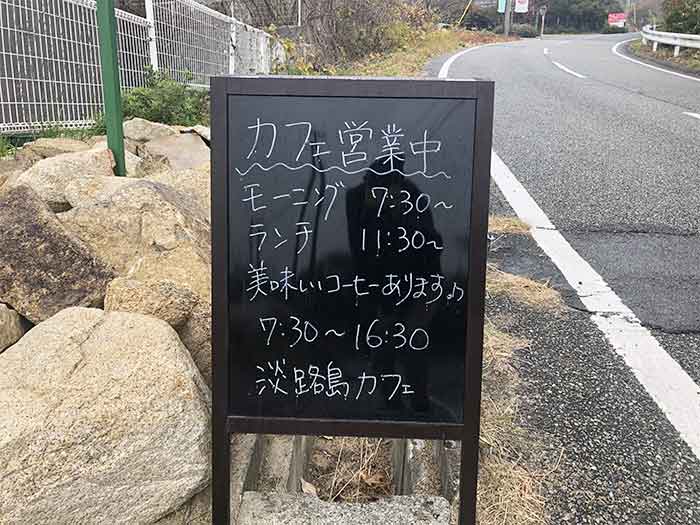 カフェ営業中
モーニング 7:30〜
ランチ 11:30〜
美味しいコーヒーあります♪
7:30〜16:30
淡路島カフェ